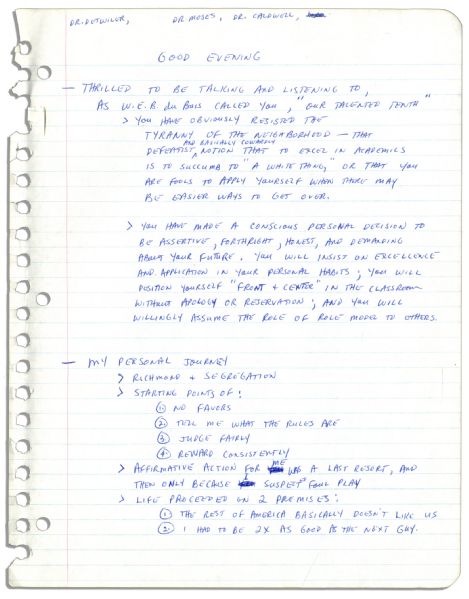 DR. DETWILER, DR MOSES, DR. CALDWELL,
GOOD EVENING
— THRILLED TO BE TALKING AND LISTENING TO,
AS W.E.B. du Bois CALLED YOU, "OUR TALENTED TENTH"
> YOU HAVE OBVIOUSLY RESISTED THE
TYRANNY OF THE NEIGHBORHOOD — THAT
AND BASICALLY COWARDLY
DEFEATIST NOTION THAT TO EXCEL IN ACADEMICS
IS TO SUCCUMB TO "A WHITE THING," OR THAT YOU
ARE FOOLS TO APPLY YOURSELF WHEN THERE MAY
BE EASIER WAYS TO GET OVER.
> YOU HAVE MADE A CONSCIOUS PERSONAL DECISION TO
BE ASSERTIVE, FORTHRIGHT, HONEST, AND DEMANDING
ABOUT YOUR FUTURE. YOU WILL INSIST ON EXCELLENCE
AND APPLICATION IN YOUR PERSONAL HABITS; YOU WILL
POSITION YOURSELF "FRONT & CENTER" IN THE CLASSROOM
WITHOUT APOLOGY OR RESERVATION; AND YOU WILL
WILLINGLY ASSUME THE ROLE OF ROLE MODEL TO OTHERS.
— MY PERSONAL JOURNEY
> RICHMOND & SEGREGATION
> STARTING POINTS OF:
1. NO FAVORS
2. TELL ME WHAT THE RULES ARE
3. JUDGE FAIRLY
4. REWARD CONSISTENTLY
> AFFIRMATIVE ACTION FOR ME WAS A LAST RESORT, AND
THEN ONLY BECAUSE I SUSPECT FOUL PLAY
> LIFE PROCEEDED ON 2 PREMISES:
1. THE REST OF AMERICA BASICALLY DOESN'T LIKE US.
2. I HAD TO BE 2X AS GOOD AS THE NEXT GUY.